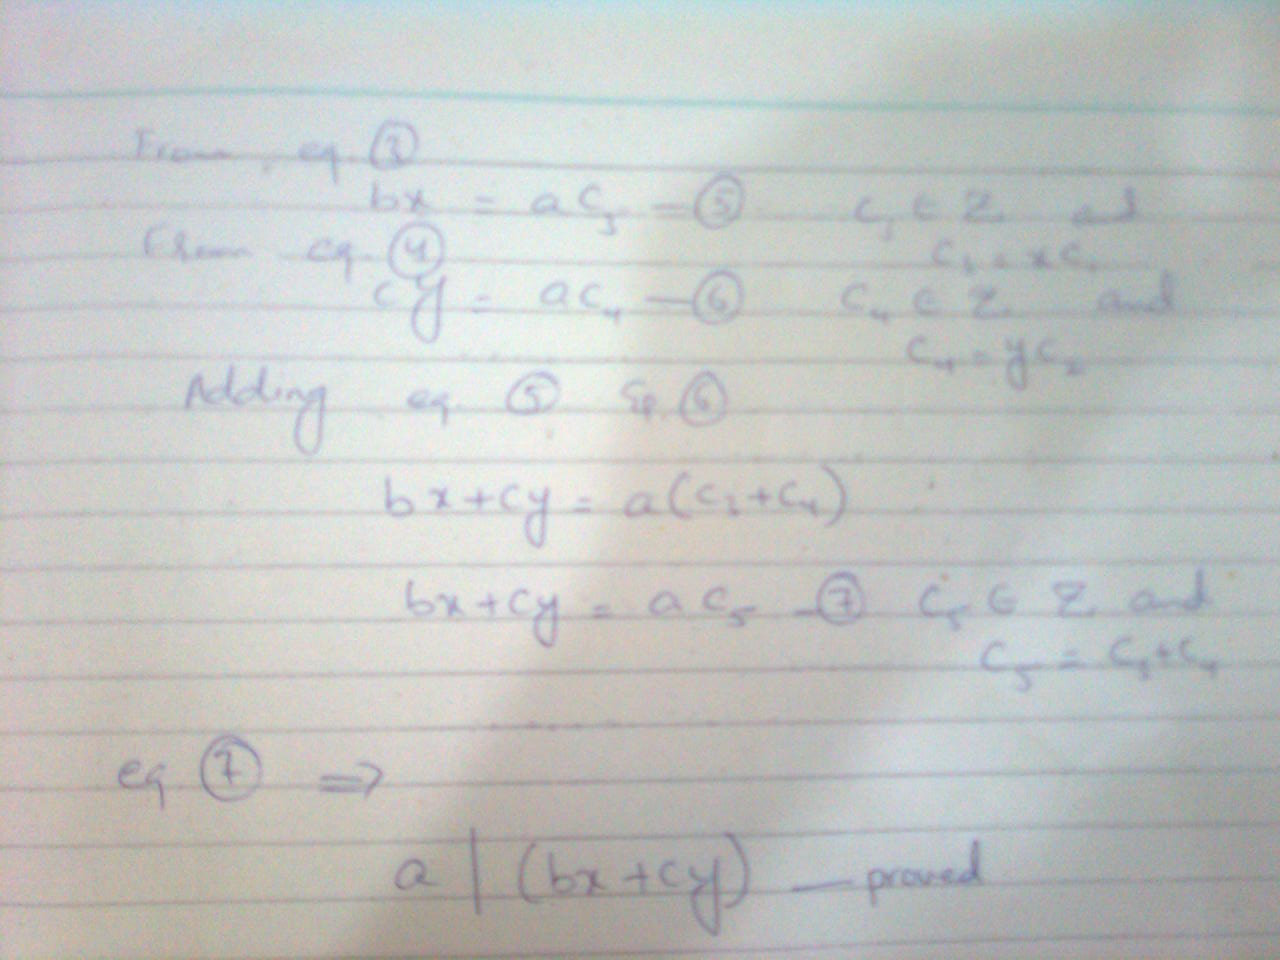 From eq ③
bx = ac₃ — ⑤ c₃ ∈ Z and
From eq ④ c₃ = xc₁
cy = ac₄ — ⑥ c₄ ∈ Z and
c₄ = yc₂
Adding eq ⑤ & ⑥
bx+cy = a(c₃+c₄)
bx+cy = ac₅ — ⑦ c₅ ∈ Z and
c₅ = c₃+c₄
eq ⑦ ⇒
a | (bx+cy) — proved